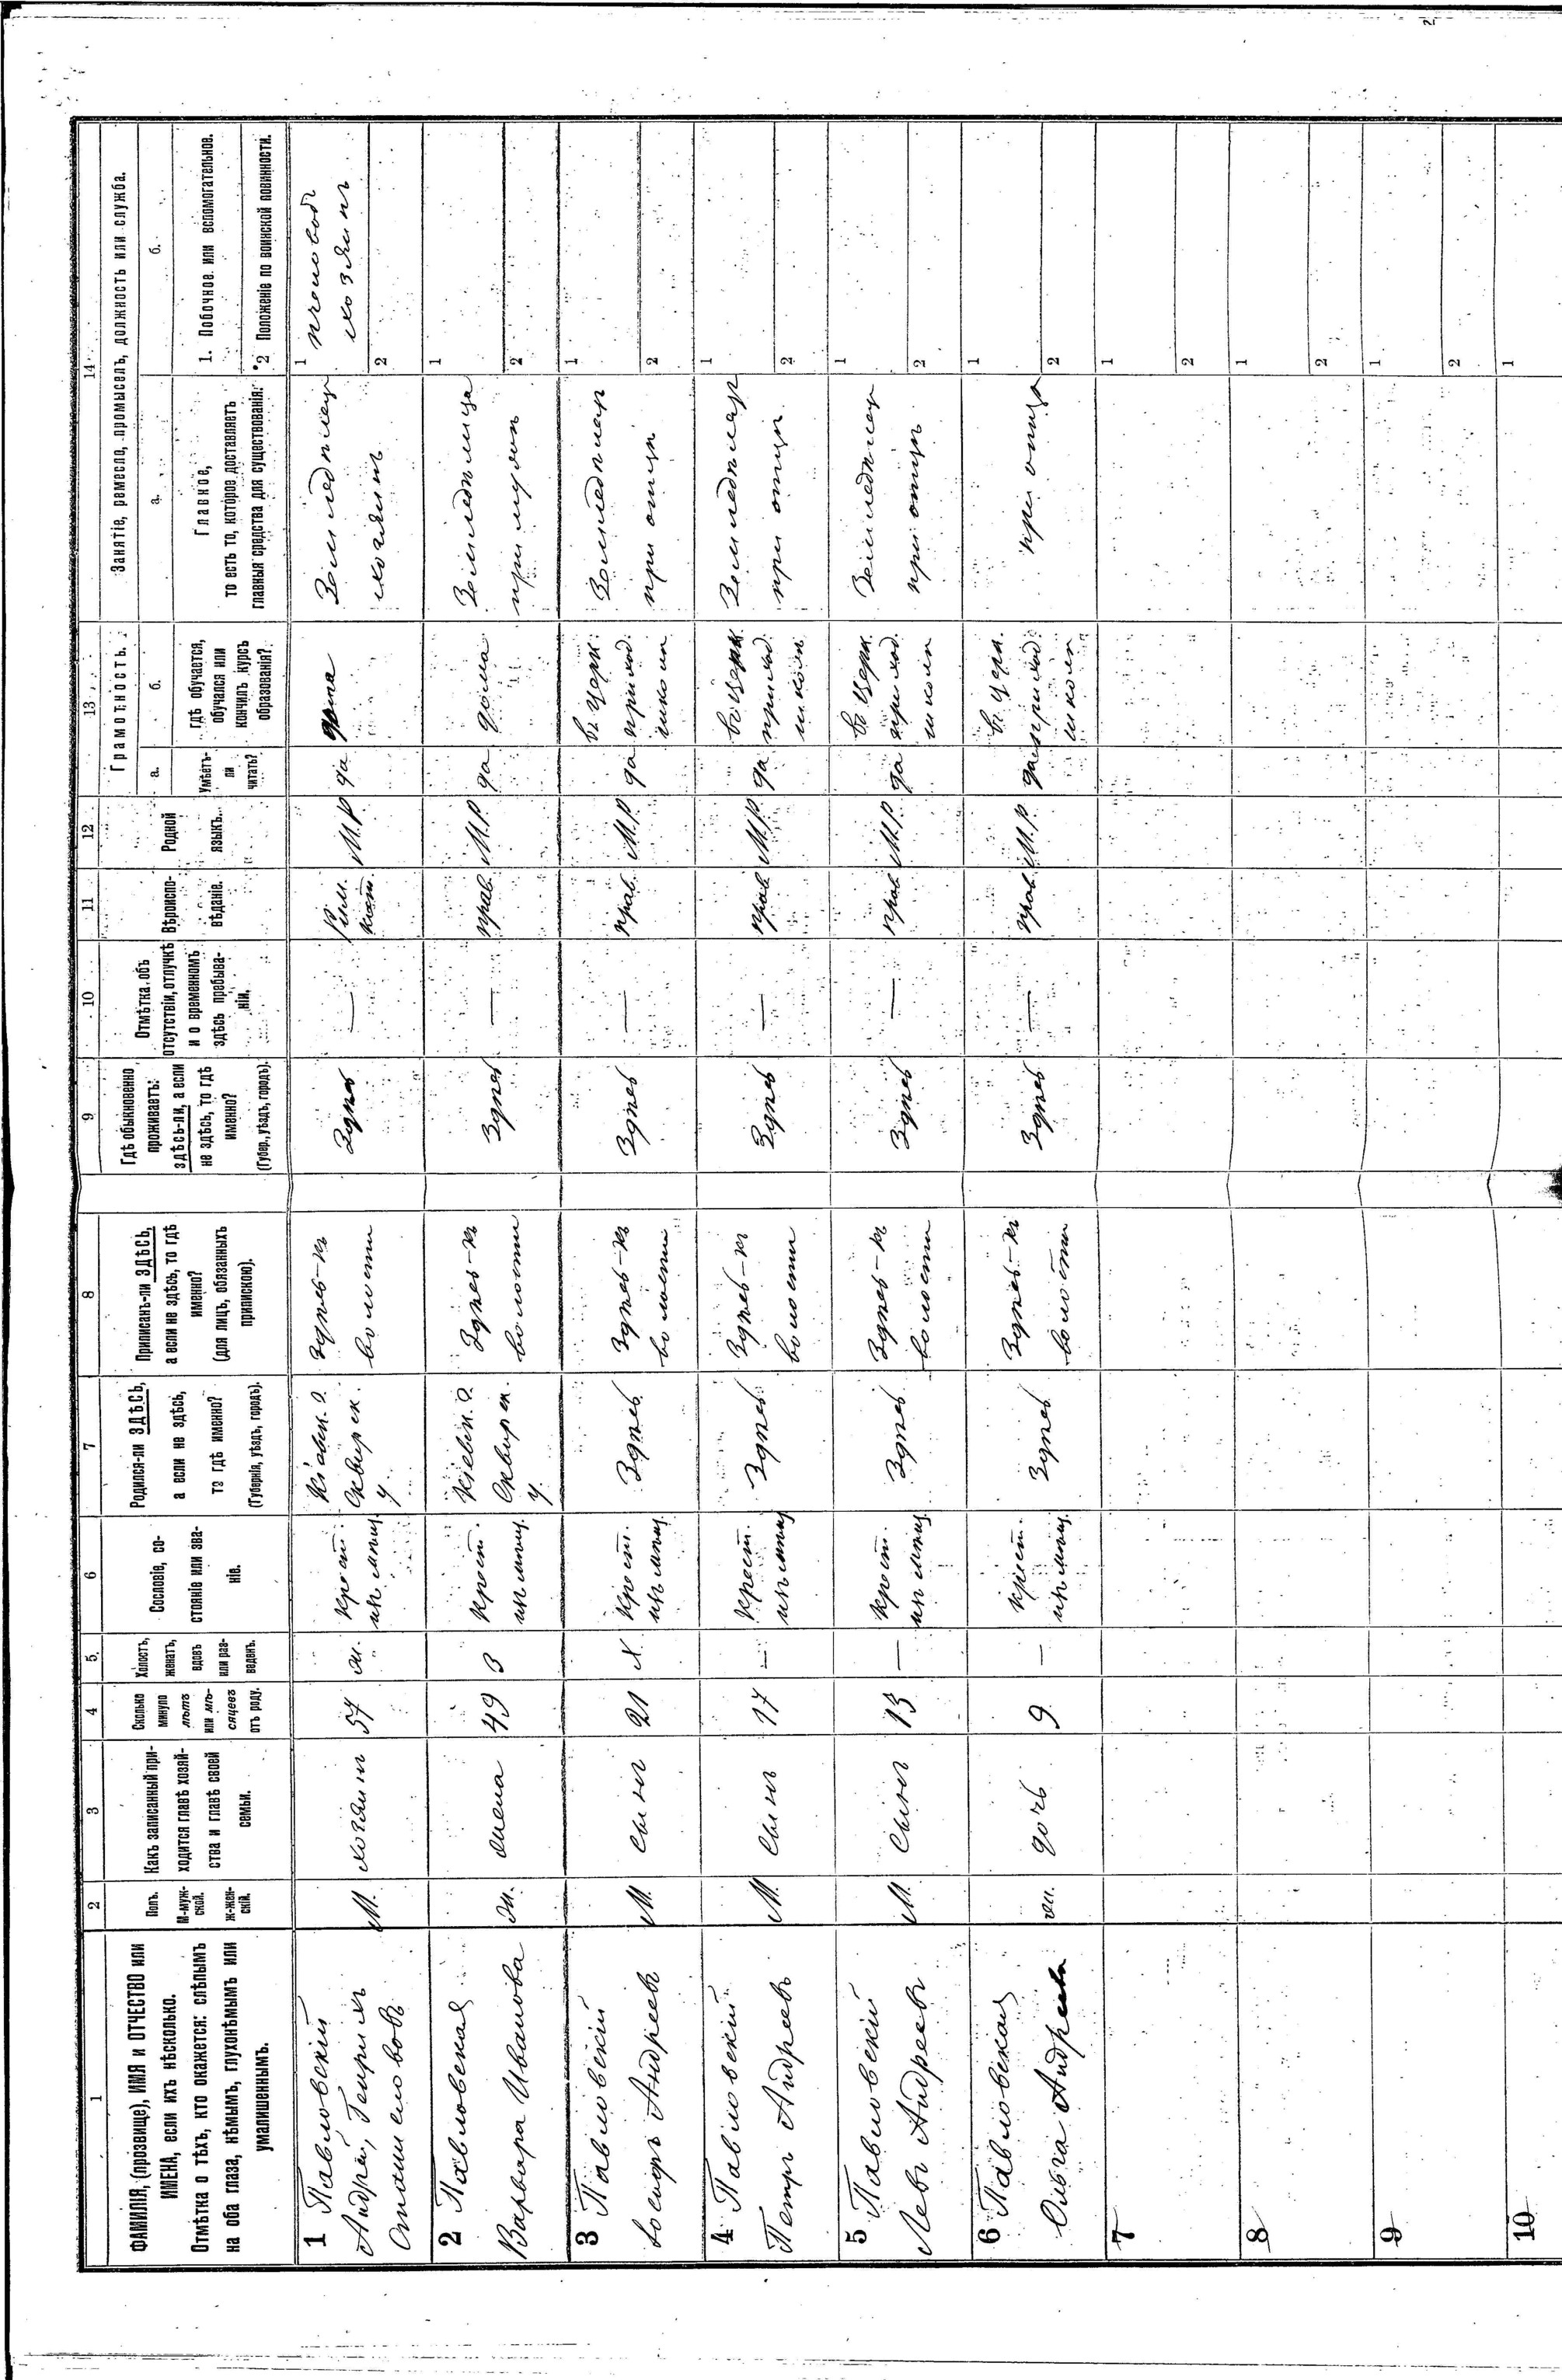 1
ФАМИЛІЯ, (прозвище), ИМЯ и ОТЧЕСТВО или
ИМЕНА, если ихъ нѣсколько.
Отмѣтка о тѣхъ, кто окажется: слѣпымъ
на оба глаза, нѣмымъ, глухонѣмымъ или
умалишеннымъ.
2
Полъ.
М-муж-
ской.
ж-жен-
скій.
3
Какъ записанный при-
ходится главѣ хозяй-
ства и главѣ своей
семьи.
4
Сколько
минуло
лѣтъ
или мѣ-
сяцевъ
отъ роду.
5.
Холостъ,
женатъ,
вдовъ
или раз-
веденъ.
6
Сословіе, со-
стояніе или зва-
ніе.
7
Родился-ли ЗДѢСЬ,
а если не здѣсь,
то гдѣ именно?
(Губернія, уѣздъ, городъ).
8
Приписанъ-ли ЗДѢСЬ,
а если не здѣсь, то гдѣ
именно?
(для лицъ, обязанныхъ
припискою).
9
Гдѣ обыкновенно
проживаетъ:
здѣсь-ли, а если
не здѣсь, то гдѣ
именно?
(Губер., уѣздъ, городъ).
10
Отмѣтка объ
отсутствіи, отлучкѣ
и о временномъ
здѣсь пребыва-
ніи.
11
Вѣроиспо-
вѣданіе.
12
Родной
языкъ.
13
Грамотность.
а.
Умѣетъ-
ли
читать?
б.
гдѣ обучается,
обучался или
кончилъ курсъ
образованія?
14
Занятіе, ремесло, промыселъ, должность или служба.
а.
Главное,
то есть то, которое доставляетъ
главныя средства для существованія.
б.
1. Побочное или вспомогательное.
2 Положеніе по воинской повинности.
1 Павловскій
Андрей, Генрихъ
Станиславовъ
М.
хозяинъ
57
ж.
крест.
Кіевск. г.
Сквирск.
у.
здѣсь-въ
волости
Здѣсь
—
Рим.
кат.
М.Р.
да
дома
Земледѣлец
хозяинъ
1 пчеловод
хозяинъ
2
2 Павловская
Варвара Иванова
ж.
жена
49
З
крест.
Кіевск. г.
Сквирск.
у.
Здѣсь-въ
волости
Здѣсь
—
прав.
М.Р.
да
дома
Земледѣлица
при мужѣ
1
2
3 Павловскій
Іосифъ Андреевъ
М.
сынъ
21
Х
крест.
Здѣсь
Здѣсь-въ
волости
Здѣсь
—
прав.
М.Р.
да
въ церк.
приход.
школѣ
Земледѣлец
при отцѣ
1
2
4 Павловскій
Петръ Андреевъ
М.
сынъ
17
—
крест.
Здѣсь
Здѣсь-въ
волости
Здѣсь
—
прав.
М.Р.
да
въ церк.
приход.
школѣ
Земледѣлец
при отцѣ
1
2
5 Павловскій
Левъ Андреевъ
М.
сынъ
13
—
крест.
Здѣсь
Здѣсь-въ
волости
Здѣсь
—
прав.
М.Р.
да
въ церк.
приход.
школѣ
Земледѣлец
при отцѣ
1
2
6 Павловская
Ольга Андреева
ж.
дочь
9
—
крест.
Здѣсь
Здѣсь-въ
волости
Здѣсь
—
прав.
М.Р.
да
въ церк.
приход.
школѣ
при отцѣ
1
2
7
1
2
8
1
2
9
1
2
10
1